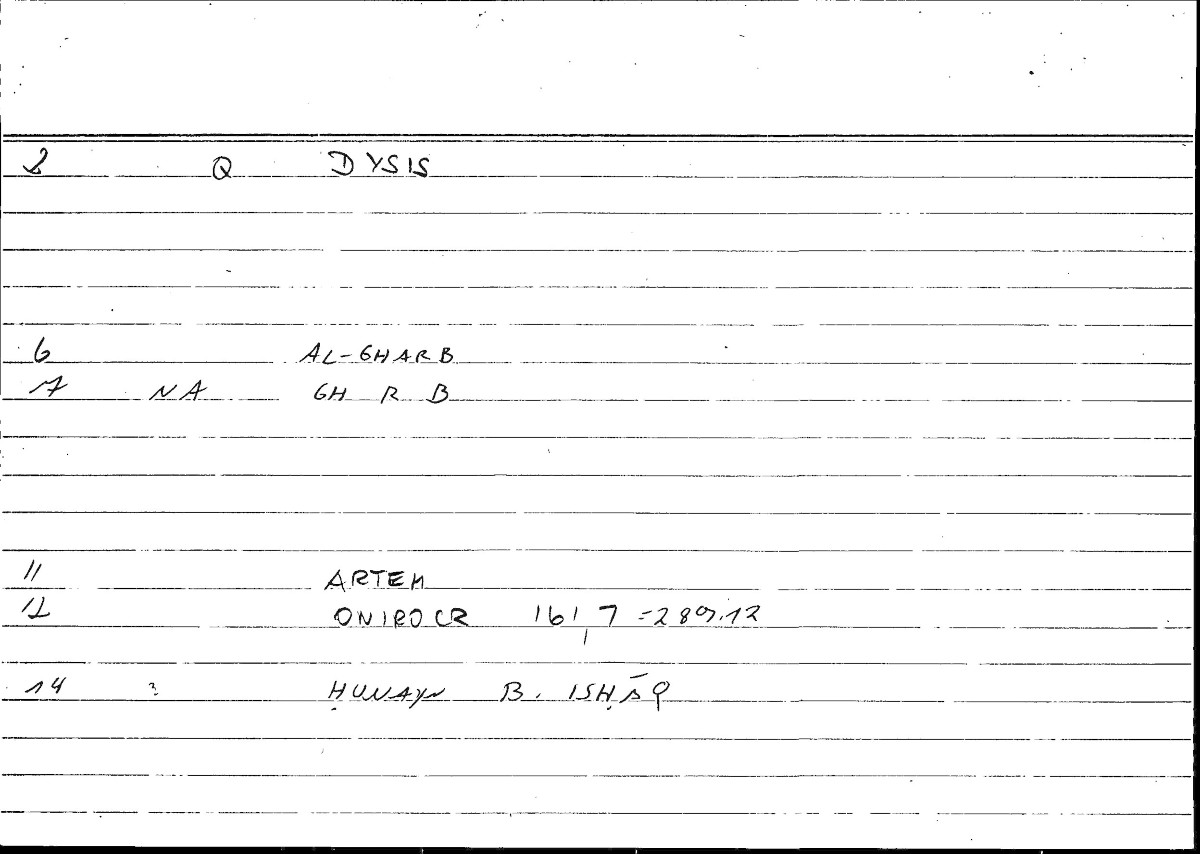 2 Q DYSIS
6 AL-GHARB
7 NA GH R B
11 ARTEM
12 ONIROCR 161,7 = 289.12
14 ? ḤUNAYN B. ISḤĀQ